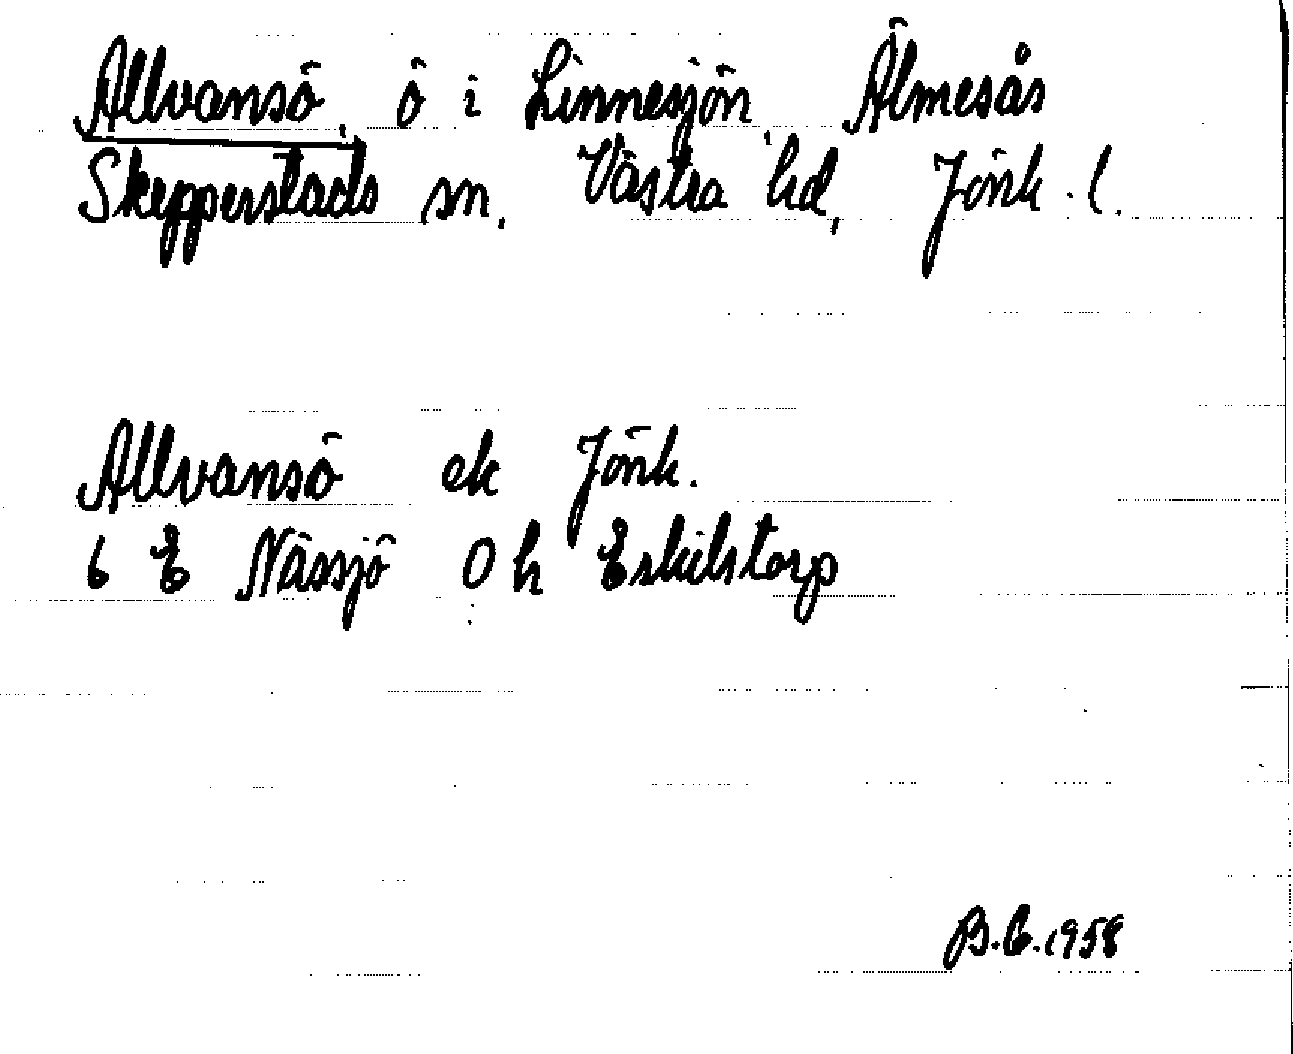 Allvansö, ö i Linnesjön, Älmesås
Skepperstads sn. Västra hd, Jönk. l.
Allvansö ek Jönk.
6 E Nässjö O h Eskilstorp
B.E. 1958